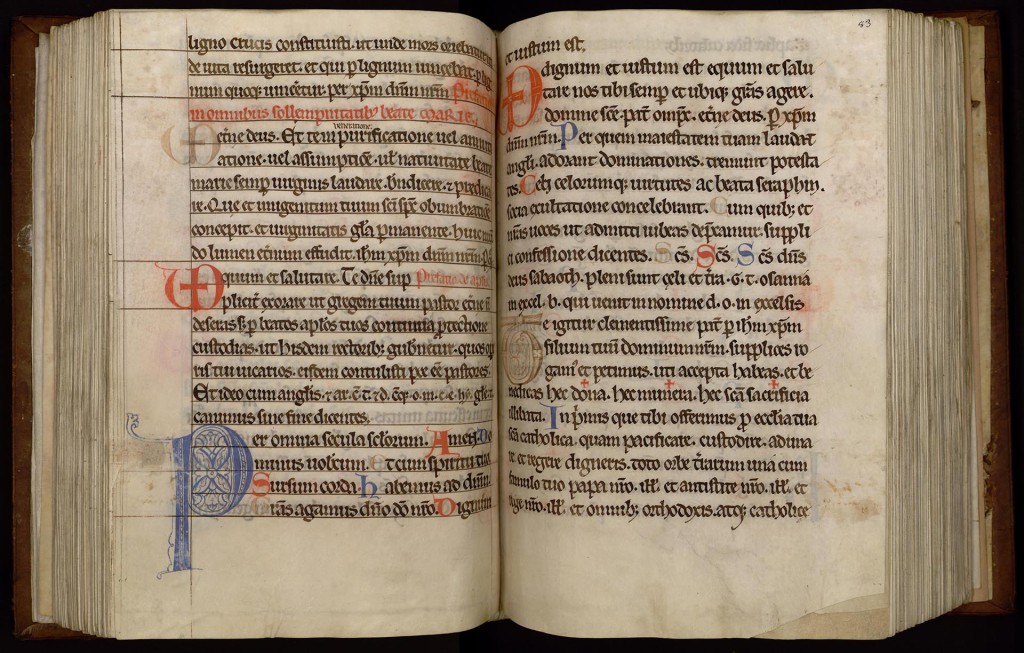 ligno crucis constituisti. ut unde mors oriebatur inde
de uita resurgeret. et qui p lignum uincebat. p lig
num quoq; uinceretur. per xpm dnm nrm Prefatio
in omnibus sollempnitatib; beate MARIE.
ueneratione.
eterne deus. Et te in purificatione uel annun
atione. uel assumptione. ul natiuitate beate
marie semp uirginis laudare. bndicere. 7 predica
re. Que et unigenitum tuum sci sps obumbratione
concepit. et uirginitatis gla pmanente. huic mun
do lumen eternum effudit. ihm xpm dnm nrm. Pq
Equum et salutare. Te dne sup Prefatio de aplis
plicit exorare ut gregem tuum pastor eterne n
deseris. s; p beatos aplos tuos continua protectione
custodias. ut hisdem rectorib; gubnetur. quos op
ris tui uicarios. eisdem contulisti pre ee pastores.
Et ideo cum anglis. 7 ar. c. t. 7 d. cq. o. m. c. e. hy. gle t.
canimus sine fine dicentes.
Per omnia secula sclorum. Amen. Do
minus uobcum. Et cum spiritu tuo.
Sursum corda. Habemus ad dnm.
Gras agamus dno do nro. Dignum
83
et iustum est.
dignum et iustum est equum et salu
tare nos tibi semp et ubiq; gras agere.
domine sce. pat omps. etne deus. P xpm
dnm nrm. Per quem maiestatem tuam laudant
angli. adorant dominationes. tremunt potesta
tes. Celi celorumq; uirtutes ac beata seraphin.
socia exultatione concelebrant. Cum quib; et
nras uoces ut admitti iubeas depcamur. suppli
ci confessione dicentes. Scs. Scs. Scs dns
deus sabaoth. pleni sunt celi et tra. G. t. osanna
in excel. b. qui uenit in nomine d. o. in excelsis
Te igitur clementissime pat p ihm xpm
filium tuum dominum nrm. supplices ro
gam' et petimus. uti accepta habeas. et be
nedicas hec dona. hec munera. hec sca sacrificia
illibata. In pimis que tibi offerimus p ecclia tua
sca catholica. quam pacificare. custodire. aduna
re et regere digneris. toto orbe trarum una cum
famulo tuo papa nro. ill. et antistite nro. ill. et
rege nro. ill. et omnib; orthodoxis. atq; catholice